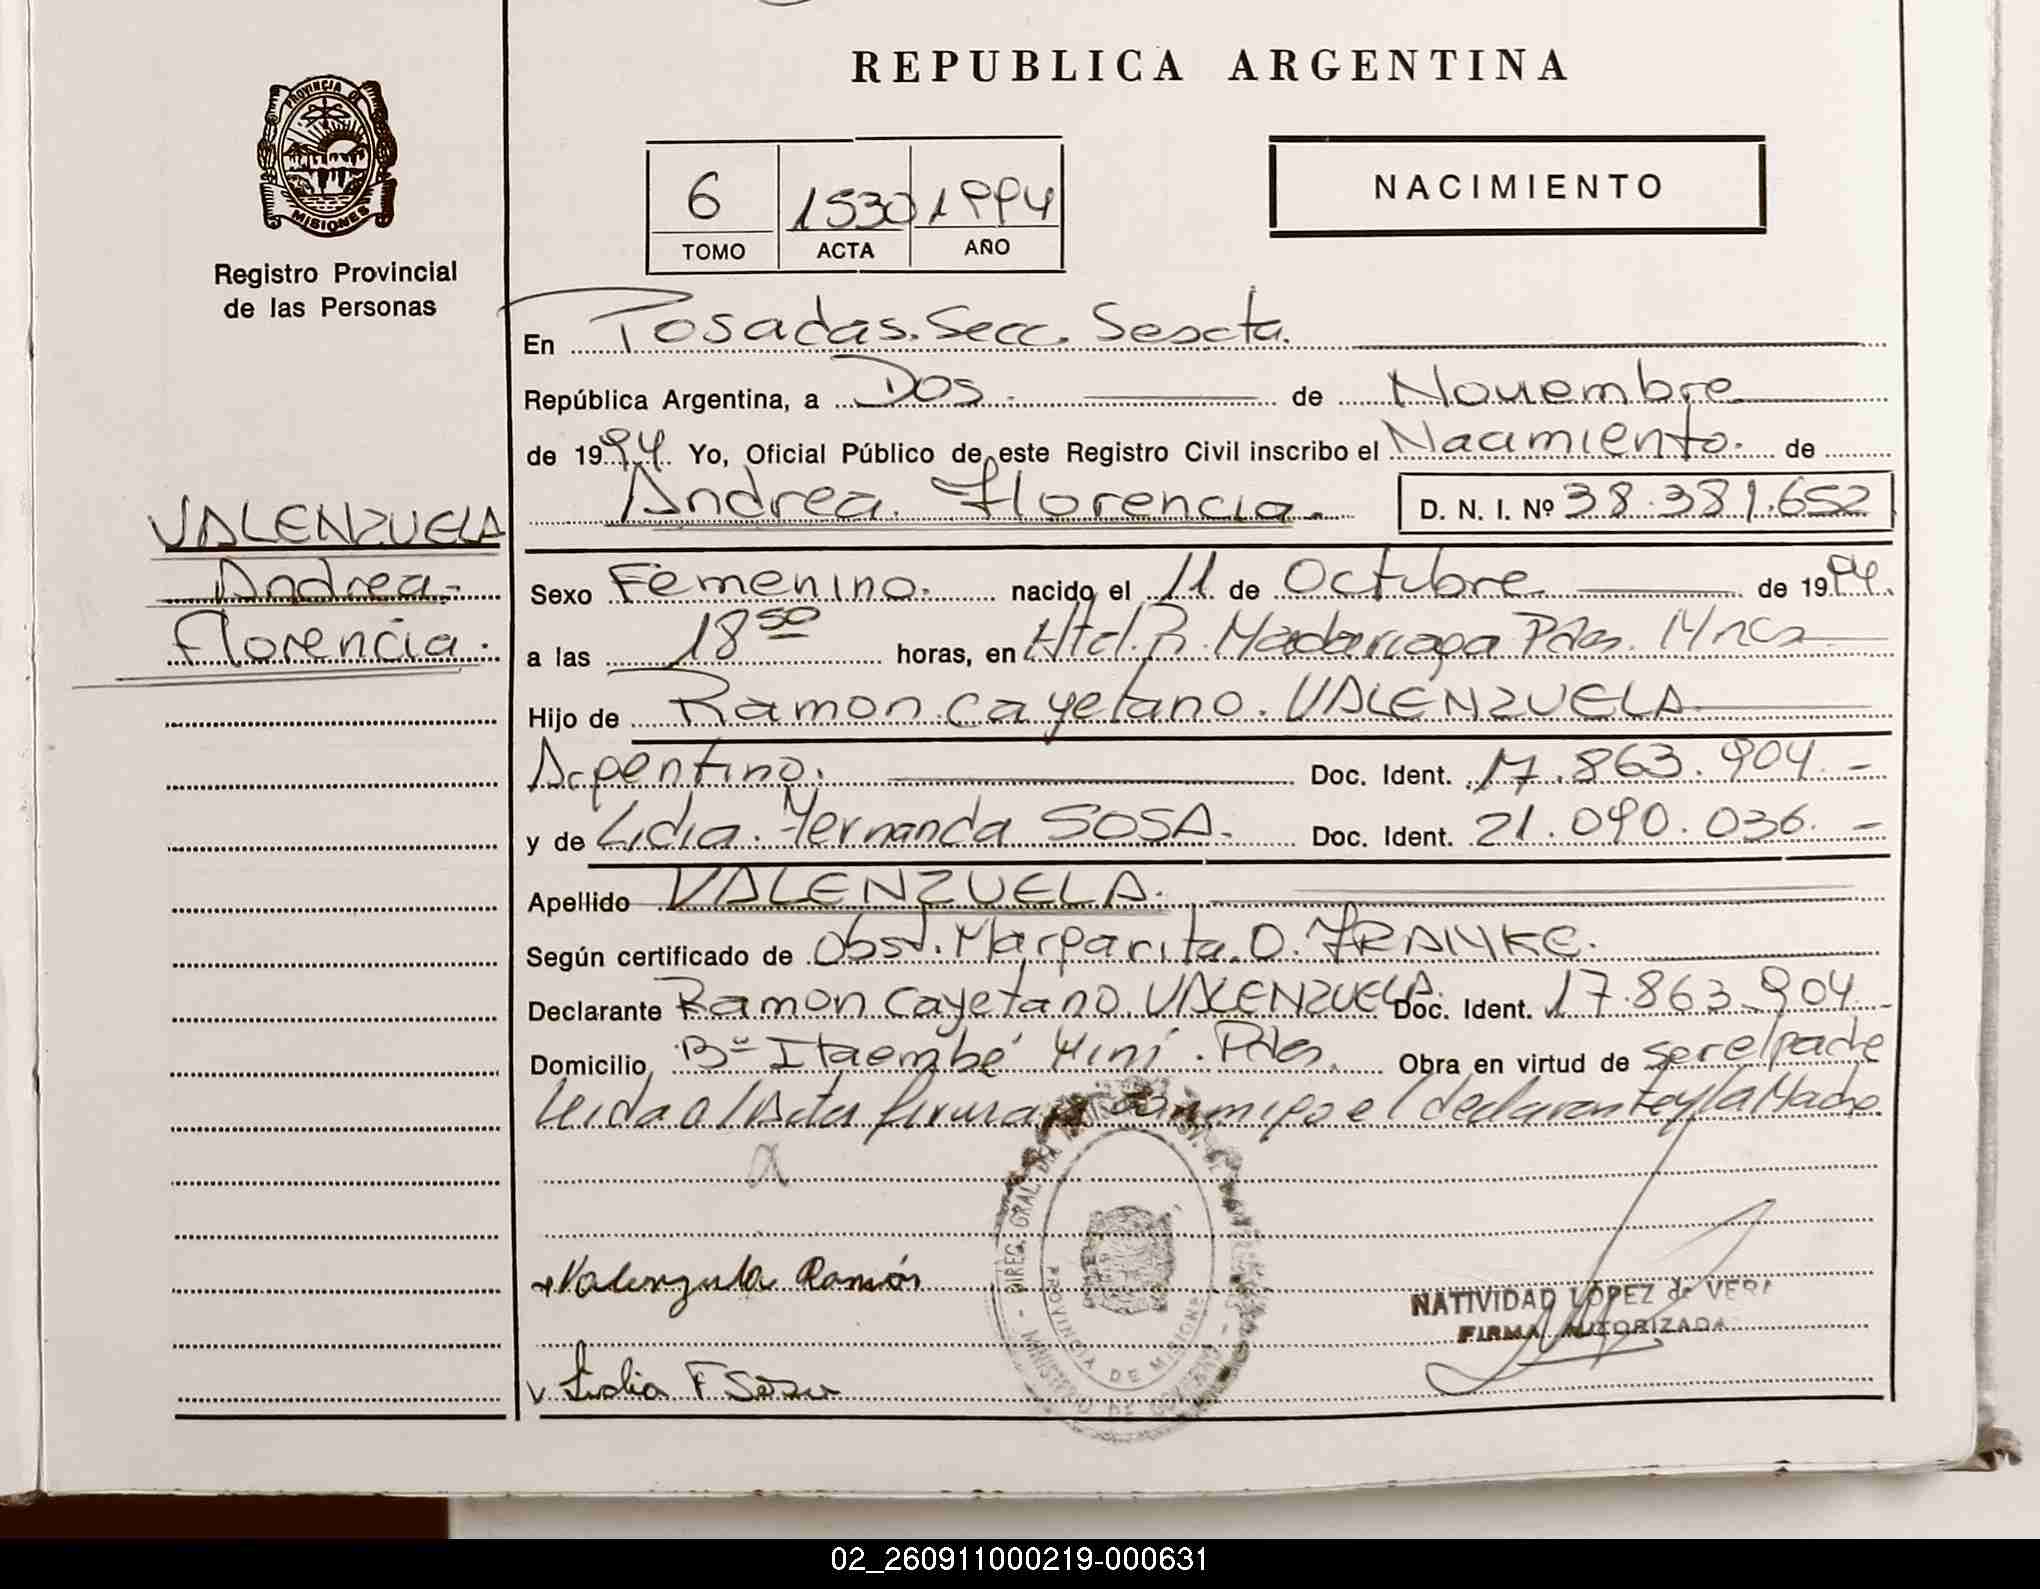 REPUBLICA ARGENTINA
PROVINCIA DE
MISIONES
Registro Provincial
de las Personas
6 1530 1994
TOMO ACTA AÑO
NACIMIENTO
En Posadas. Secc. Sexta.
República Argentina, a Dos. de Noviembre
de 1994 Yo, Oficial Público de este Registro Civil inscribo el Nacimiento. de
Andrea. Florencia. D. N. I. Nº 38.381.652
VALENZUELA
Andrea.
Florencia.
Sexo Femenino. nacido el 11 de Octubre de 1994.
a las 18 50 horas, en Htal. R. Madariaga Pdas. Mnes
Hijo de Ramon Cayetano. VALENZUELA
Argentino. Doc. Ident. 17.863.904.-
y de Lidia. Fernanda SOSA. Doc. Ident. 21.090.036.-
Apellido VALENZUELA.
Según certificado de Obst. Margarita. O. FRANKE.
Declarante Ramon Cayetano. VALENZUELA. Doc. Ident. 17.863.904
Domicilio Bº Itaembé Miní. Pdas. Obra en virtud de ser el padre
Leida el Acta firman conmigo el declarante y la Madre
Valenzuela Ramón
Lidia F Sosa
DIREC. GRAL. DEL
PROVINCIA DE MISIONES
NATIVIDAD LÓPEZ de VERA
FIRMA AUTORIZADA
02_260911000219-000631